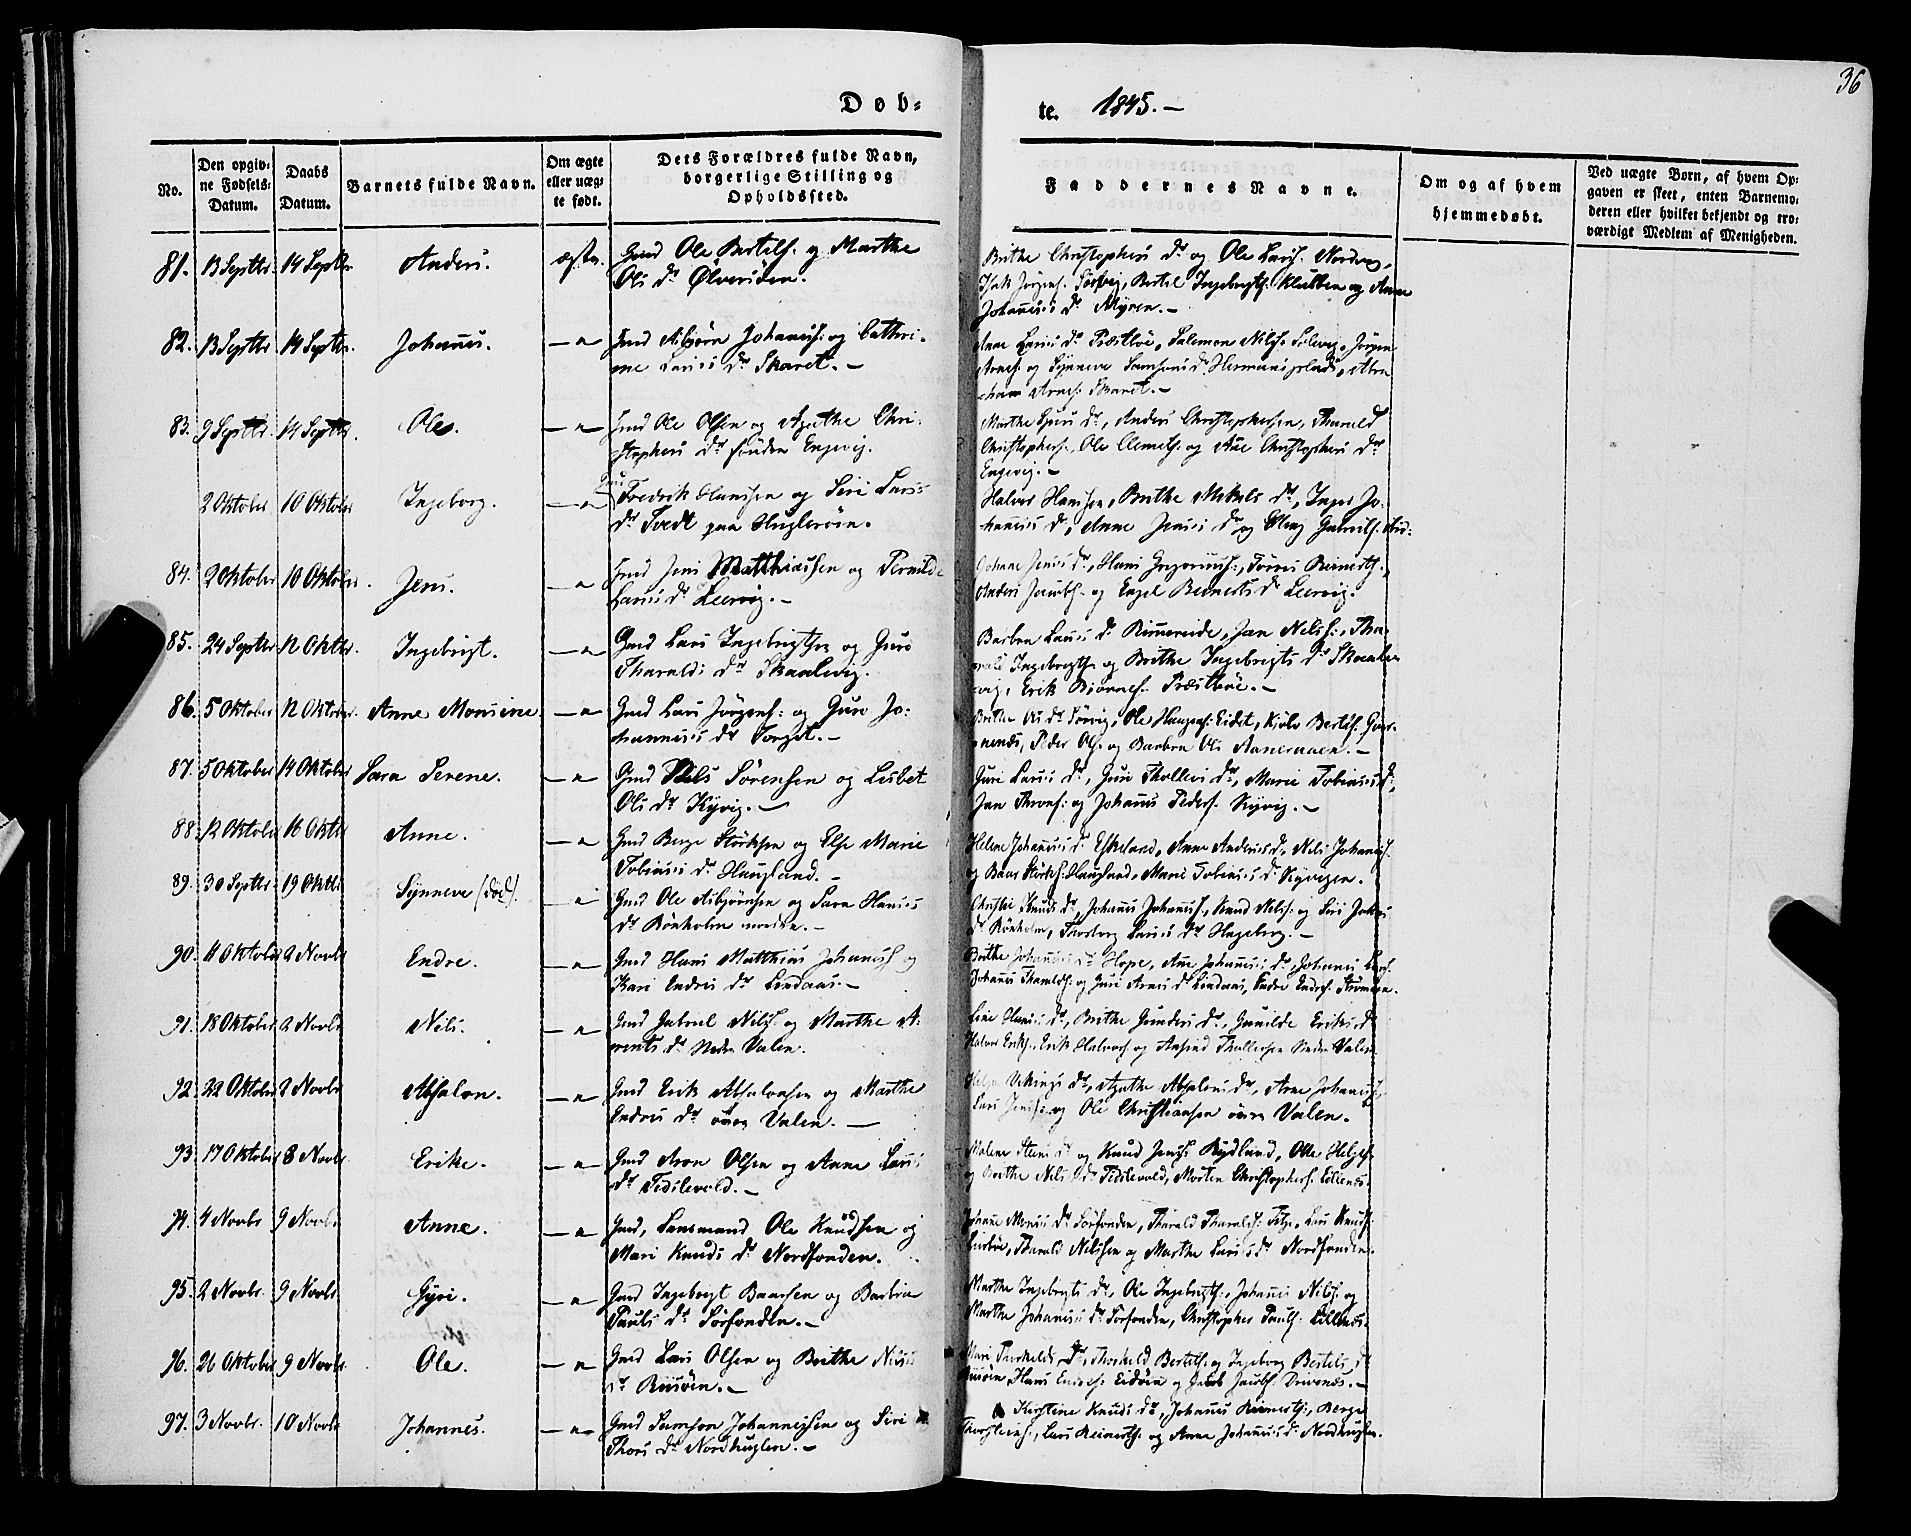 36
Døb-
te. 1845.-
No.
Den opgiv-
ne Fødsels-
Datum.
Daabs
Datum.
Barnets fulde Navn.
Om ægte
eller uæg-
te født.
Dets Forældres fulde Navn,
borgerlige Stilling og
Opholdssted.
Faddernes Navne.
Om og af hvem
hjemmedøbt.
Ved uægte Børn, af hvem Op-
gaven er skeet, enten Barnemo-
deren eller hvilket bekjendt og tro-
værdigt Medlem af Menigheden.
81. 13 Septbr. 14 Septbr. Anders. ægte. Gmd Ole Bertels. og Marthe
Ols Dr Ølversøen.
Brithe Christophers Dr og Ole Lars. Nordvig,
Isak Jørgens. Bertel Ingebrigts. Klubben og Anne
Johannes Dr Myren.-
82. 13 Septbr. 14 Septbr. Johannes. -"- Gmd Asbjørn Johannes. og Cathri-
ne Larsis Dr Skaret.-
Anne Larsis Dr Præstbøe, Salemon Nils. Jørgen
Arnes. og Synneve Samsons Dr Hermansplads,
Arnes. Skaret.-
83. 9 Septbr. 14 Septbr. Ole. -"- Gmd Ole Olsen og Agathe Chri-
stophers Dr søndre Engevig.
Marthe Dr, Anders Christophersen, Tharald
Christophers., Ole Clemets. og Ane Christophers Dr
Engevig.-
2 Oktober 10 Oktober Ingeborg. -"- Fredrik Hansen og Siri Larsis
Dr Tvedt paa Huglerøen.
Halvor Hansen, Brithe Mikels Dr, Inger Jo-
hannes Dr, Anne Jensis Dr og Gabriels.
84. 2 Oktober 10 Oktober. Jens. -"- Gmd Jens Matthiassen og Pernilde
Larsis Dr Leervig.-
Johane Jensis Dr, Hans Reinerts.,
Anders Jacobs. og Engel Reinerts Dr Leervig.
85. 24 Septbr. 12 Oktbr. Ingebrigt. -"- Gmd Lars Ingebrigtsen og Guro
Tharalds Dr Skaalevig.
Barbra Larsis Dr Rimereide, Jan Nils., Tha-
rald Ingebrigts. og Brithe Ingebrigts Dr Skaale-
vig, Erik Bjørnes. Præstbøe.-
86. 5 Oktober 12 Oktober. Anne Monsine -"- Gmd Lars Jørgens. og Guro Jo-
hannesis Dr Torget.-
Brithe Ols Dr Sørvig, Ole Haagens. Eidet, Bertels.
Peder Ols. og Barbra Ols.-
87. 5 Oktober 14 Oktober Sara Serene. -"- Gmd Nels Sørensen og Lisbet
Ols Dr Kyvig.-
Guri Larsis Dr, Guri Thollevs Dr, Marie Tobiasis Dr,
Jan Thrones. og Johannes Peders. Kyvig.-
88. 12 Oktober 16 Oktbr Anne. -"- Gmd Berge Størksen og Else Marie
Tobiasis Dr Haugland.-
Helene Johannesis Dr Eskeland, Anne Andersis Dr, Nils Johannes.
og Baar Størks. Haugland, Marie Tobiasis Dr Kyvigen.
89. 30 Septbr. 19 Oktbr. Synneve (død). -"- Gmd Ole Asbjørnsen og Sara Hansis
Dr Rönholm nordre.-
Christie Knuds Dr, Johannes Johannes., Knud Nils. og Siri
Dr Rönholm, Thorborg Larsis Dr Hageberg.-
90. 11 Oktober 2 Novbr Endre. -"- Gmd Hans Matthias Johannes. og
Kari Endres Dr Lindaas.-
Brithe Johannesis Dr Hope, Ane Johannesis Dr, Johannes Lars.
Johannes Tharalds. og Guri Arnes Dr Lindaas, Endre Endres. Strømøen.
91. 18 Oktober 2 Novbr Nils. -"- Gmd Gabriel Nils. og Marthe A-
rents Dr Nedre Valen.
Line Hansis Dr, Brithe Gunders Dr, Gunilde Eriks Dr
Halvor Eriks., Erik Halvors. og Thollevsen Nedre Valen.
92. 22 Oktober 2 Novbr Absalon. -"- Gmd Erik Absalonsen og Marthe
Endres Dr øvre Valen.-
Helga Vikings Dr, Agathe Absalons Dr, Arne Johannes.,
Lars Jens. og Ole Christiansen øvre Valen.
93. 17 Oktober 8 Novbr. Erike. -"- Gmd Aron Olsen og Anne Larsis
Dr Tedslevold.-
Malene Steens Dr og Knud Jens. Rydland, Ole Helges.
og Brithe Nils Dr Tedslevold, Morten Christophers. Lillenes.
94. 4 Novbr. 9 Novbr. Anne. -"- Gmd, Lensmand Ole Knudsen og
Mari Knuds Dr Nordfonden.
Johane Monsis Dr Sørfonden, Tharald Tharalds. Fitje, Lars Knuds.
Tharald Nilsen og Marthe Larsis Dr Nordfonden.
95. 2 Novbr. 9 Novbr. Gyri. -"- Gmd Ingebrigt Baarsen og Barbra
Pauls Dr Sørfonden.-
Marthe Ingebrigts Dr, Ole Ingebrigts., Johannes Nils. og
Marthe Johannesis Dr Sørfonden, Christopher Pauls. Lillenes.
96. 26 Oktober 9 Novbr. Ole. -"- Gmd Lars Olsen og Brithe Nilsis
Dr Riisøen.-
Mari Thorkelds Dr, Thorkeld Bertels. og Ingeborg Bertels Dr
Riisøen, Hans Endres. Eidøen og Jacob Jacobs. Drivenes.-
97. 3 Novbr. 10 Novbr Johannes. -"- Gmd Samson Johannessen og Siri
Thors Dr Nordhuglen.-
Kirstine Knuds Dr, Johannes Reinerts., Berge
Thorsteins., Lars Reinerts. og Anne Johannesis Dr Nordhuglen.